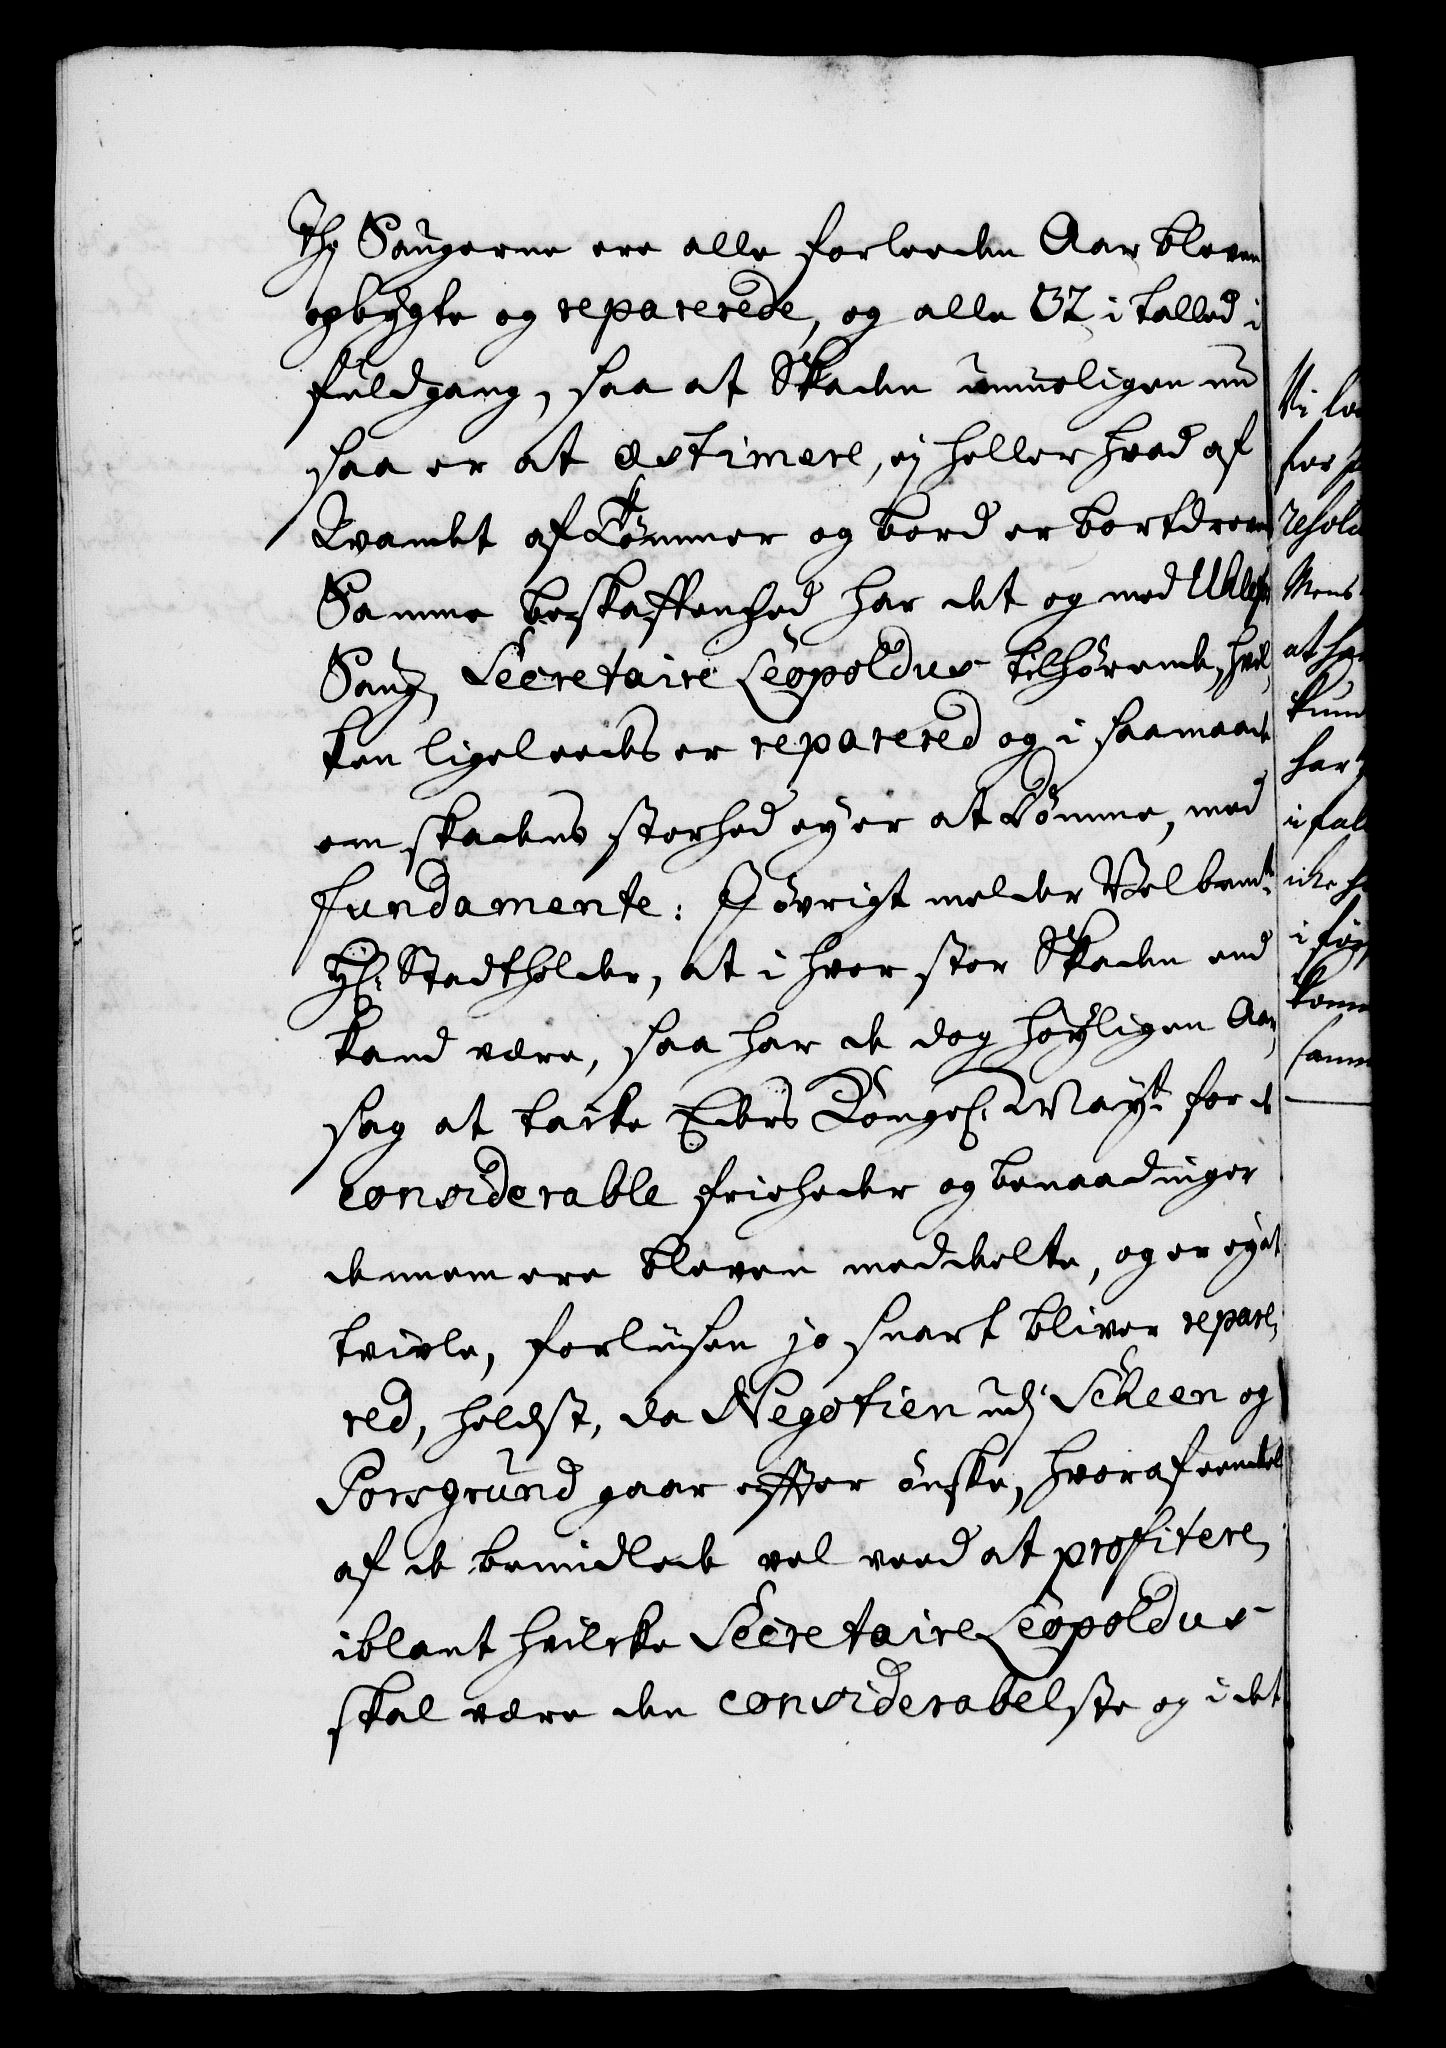 Thj Saugerne ere alle forleeden Aar bleven
opbÿgte og reparerede, og alle 32 i talled i
fuldgang, saa at Skaden umueligen nu
saa er at æstimere, ej heller hvad af
Qvandt af Tömmer og bord er bortdreven
Samme beskaffenhed har det og med Ulefos
Saug, Secretaire Leopoldus tilhörende, hvil,
ken ligeleedes er reparered og i saamaade
om skadens storhed eÿ er at dömme, med
fundamente: I övrigt melder Velbemte
Hr: Stadtholder, at i hvor stor Skaden end
kand være, saa har de dog höÿligen Aar,
sag at tacke Eders Kongel: Maÿt for de
considerable friheder og benaadinger
dennem ere bleven meddeelte, og er eÿ at
tvivle, forliisen jo snart bliver repare,
red, heldst, da Negotien udj Scheen og
Porsgrund gaar efter önske, hvoraf eendeel
af de bemidlede vel veed at profitere,
iblant hvilcke Secretaire Leopoldus
skal være den considerabelste og i det
Vi
for
resol
at
kun
har
i fal
icke
i
kom
samm